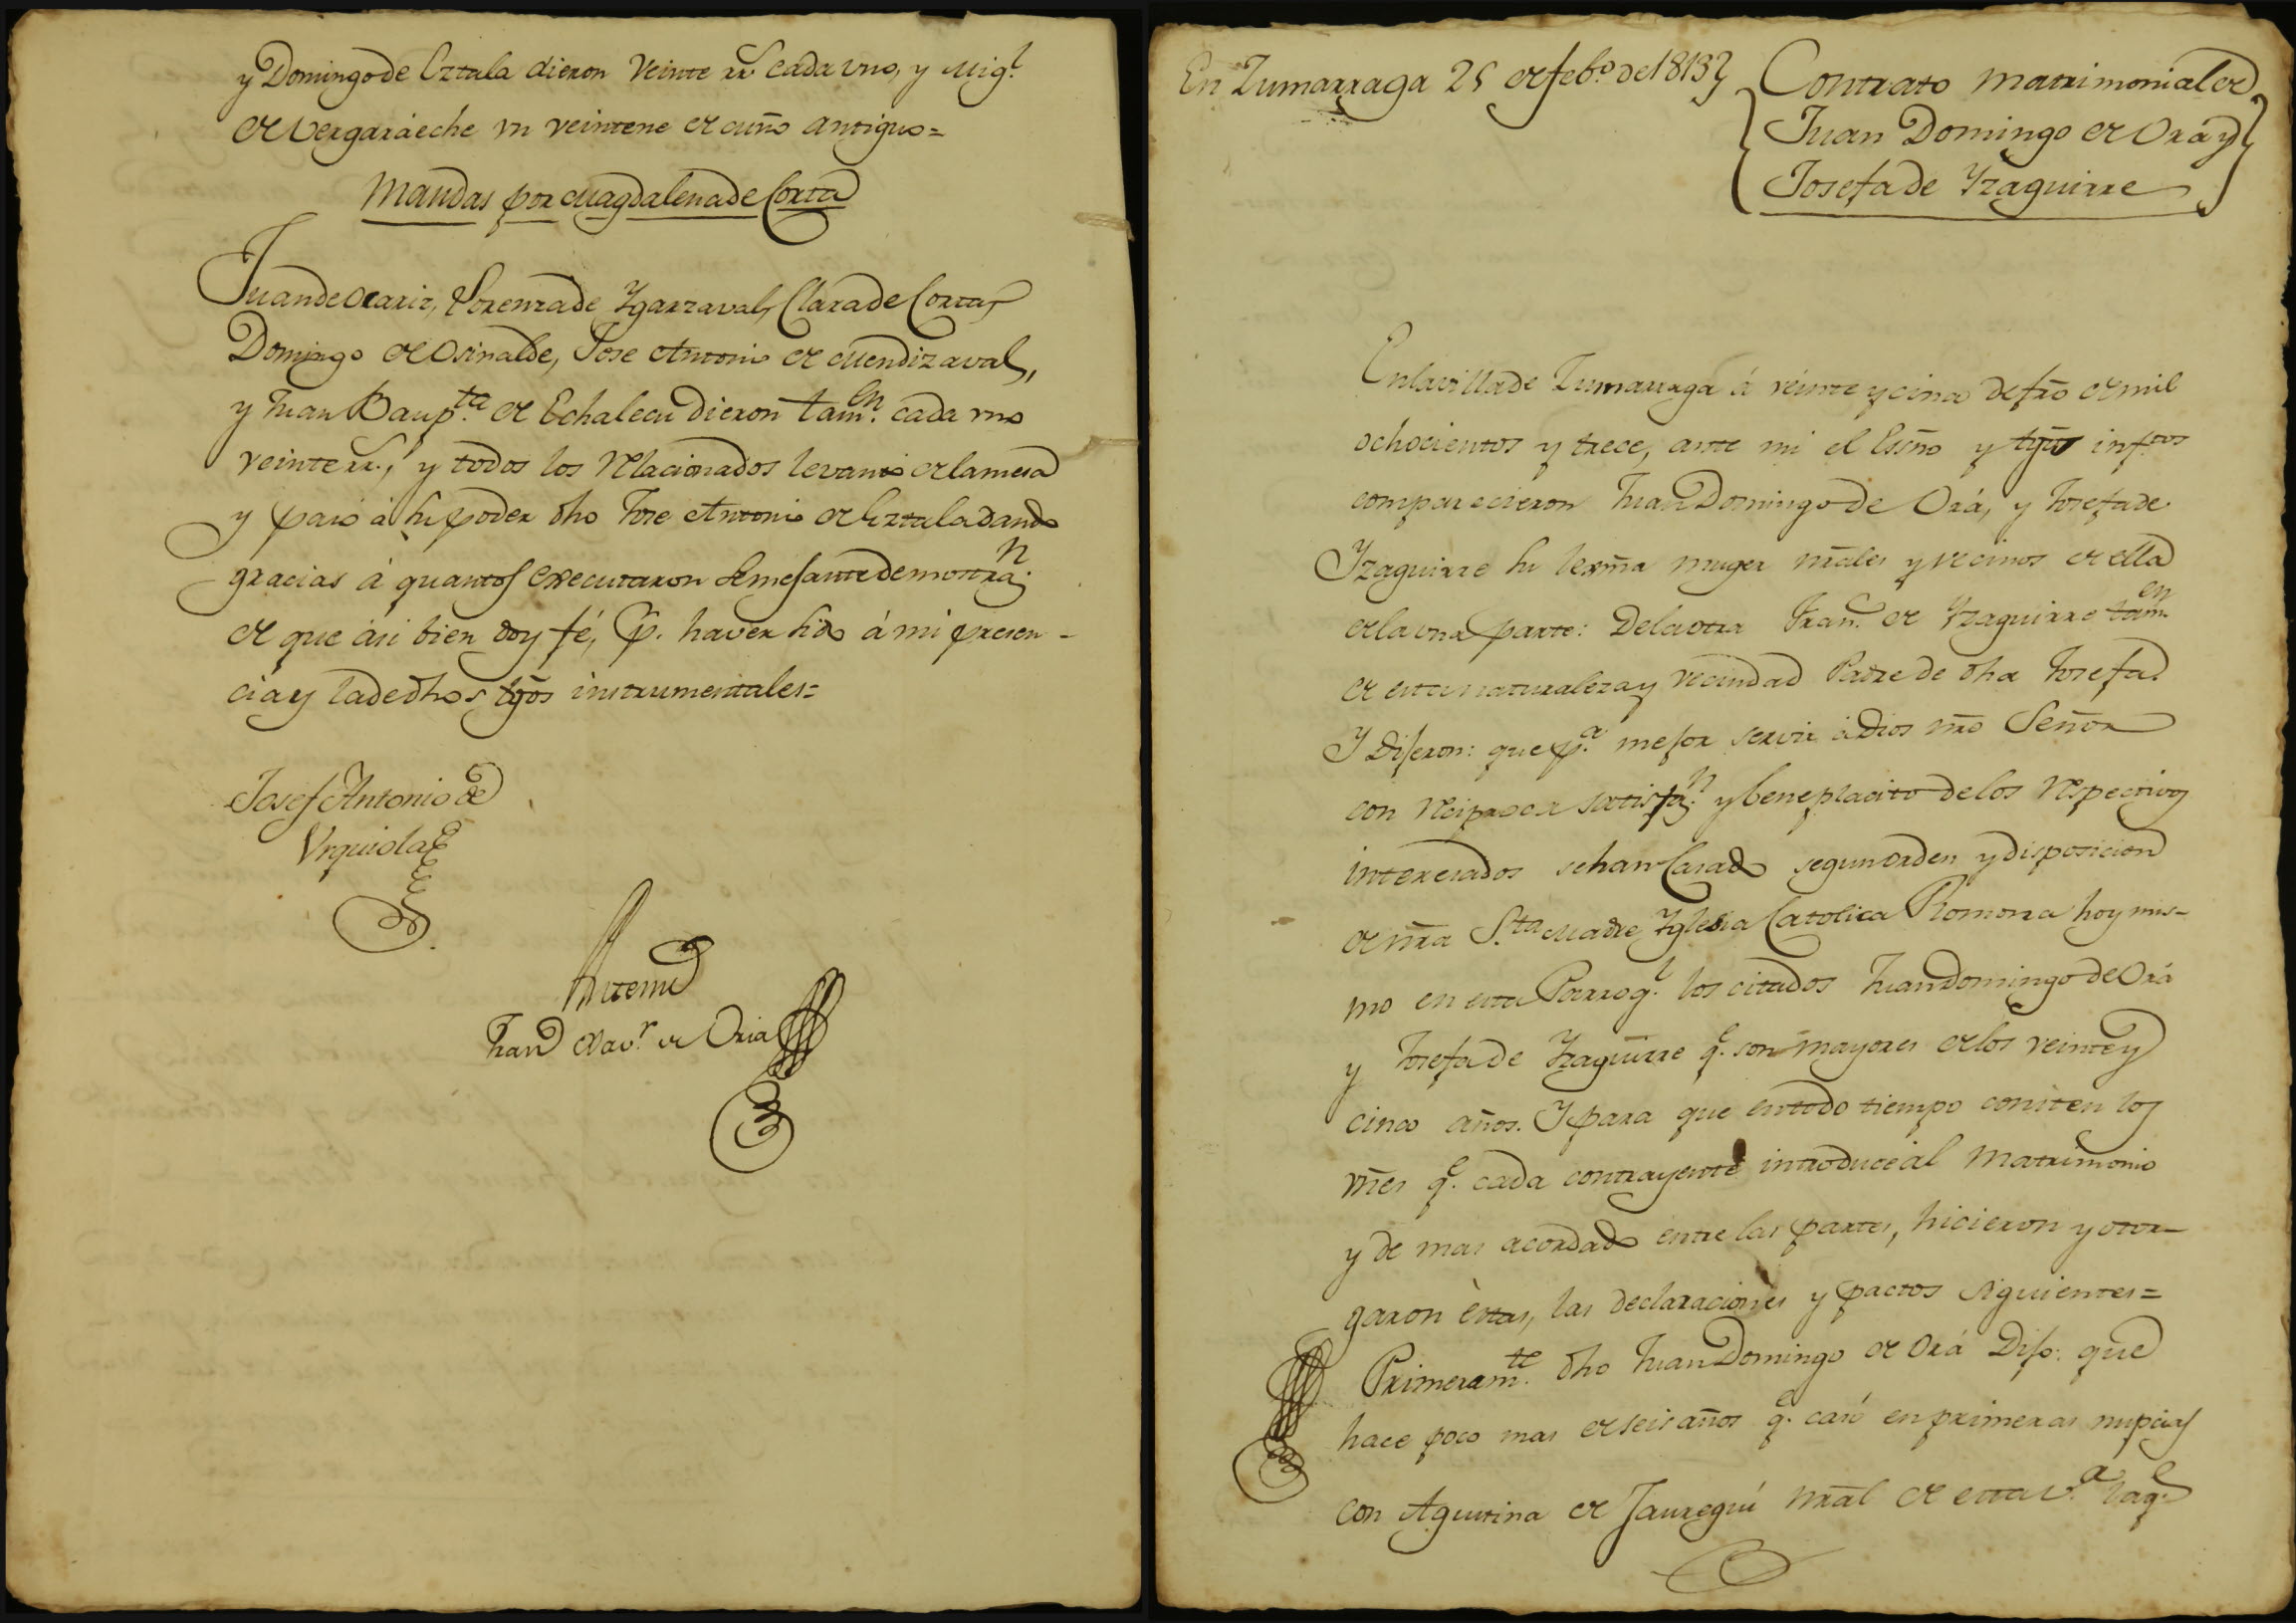 y Domingo de Eztala dieron veinte rr.s cada uno, y Mig.l
de Vergaraeche un veintene de cuño antiguo=
Mandas por Magdalena de Corta
Juan de Ocariz, Lorenza de Ygarzaval, Clara de Corta,
Domingo de Osinalde, Jose Antonio de Mendizaval,
y Juan Baup.ta de Echalecu dieron tam.en cada uno
veinte rr.s, y todos los relacionados levantó de la mesa
y pasó à su poder dho Jose Antonio de Eztala dando
gracias à quantos executaron semejante demostra.n
de que asi bien doy fé, p. haver sido á mi presen-
cia y la de dhos tgõs instrumentales=
Josef Antonio de
Vrquiola
Antemi
Juan Xav.r de Oria
En Zumarraga 25 de feb.o de 1813
Contrato matrimonial de
Juan Domingo de Orá y
Josefa de Yzaguirre
En la villa de Zumarraga á veinte y cinco de fro de mil
ochocientos y trece, ante mi el Essño y tgos inf.tos
comparecieron Juan Domingo de Orá, y Josefa de
Yzaguirre su lexma muger nrales y vecinos de ella
de la una parte: De la otra Fran.co de Yzaguirre tam.en
de esta naturaleza y vecindad Padre de dha Josefa
Y Dijeron: que p.a mejor servir à Dios nrõ Señor
con reciproca satisfa.n y beneplacito de los respectivos
interesados se han Casado segun orden y disposicion
de nrã S.ta Madre Yglesia Catolica Romona hoy mis-
mo en esta Parroq.l los citados Juan Domingo de Orá
y Josefa de Yzaguirre q.e son mayores de los veinte y
cinco años. Y para que en todo tiempo consten los
vnes q.e cada contrayente introduce al Matrimonio
y de mas acordado entre las partes, hicieron y otor-
garon èstas, las declaraciones y pactos siguientes=
Primeram.te dho Juan Domingo de Orá Dijo: que
hace poco mas de seis años q.e casó en primeras nupcias
con Agustina de Jauregui nrãl de esta v.a la q.e